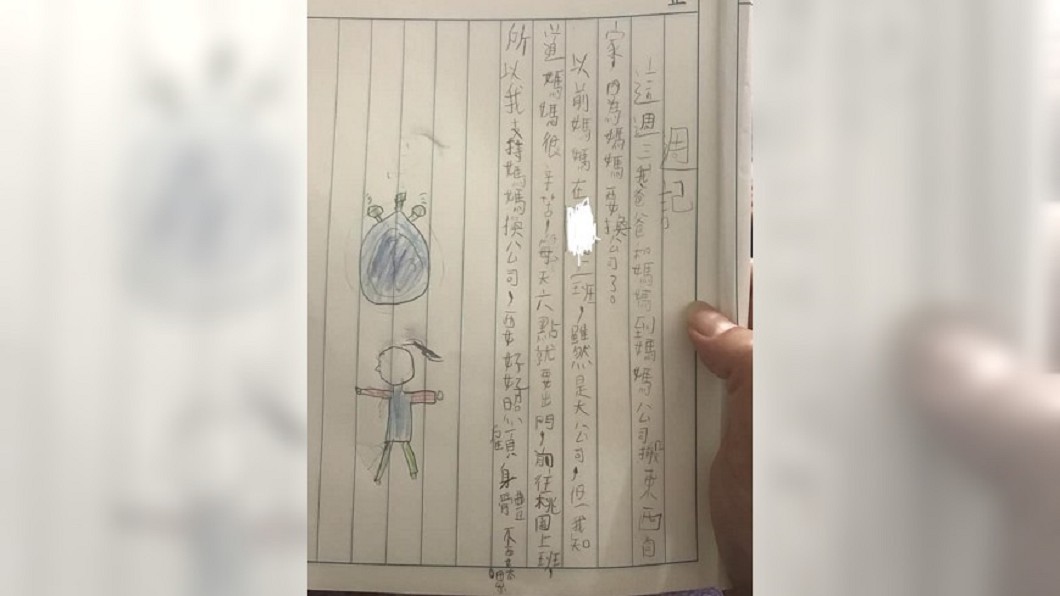 周記
這週三我爸爸和媽媽到媽媽公司搬東西自
家，因為媽媽要換公司了。
以前媽媽在上班，雖然是大公司，但我知
道媽媽很辛苦，每天六點就要出門，前往桃園上班，
所以我支持媽媽換公司，要好好照顧身體